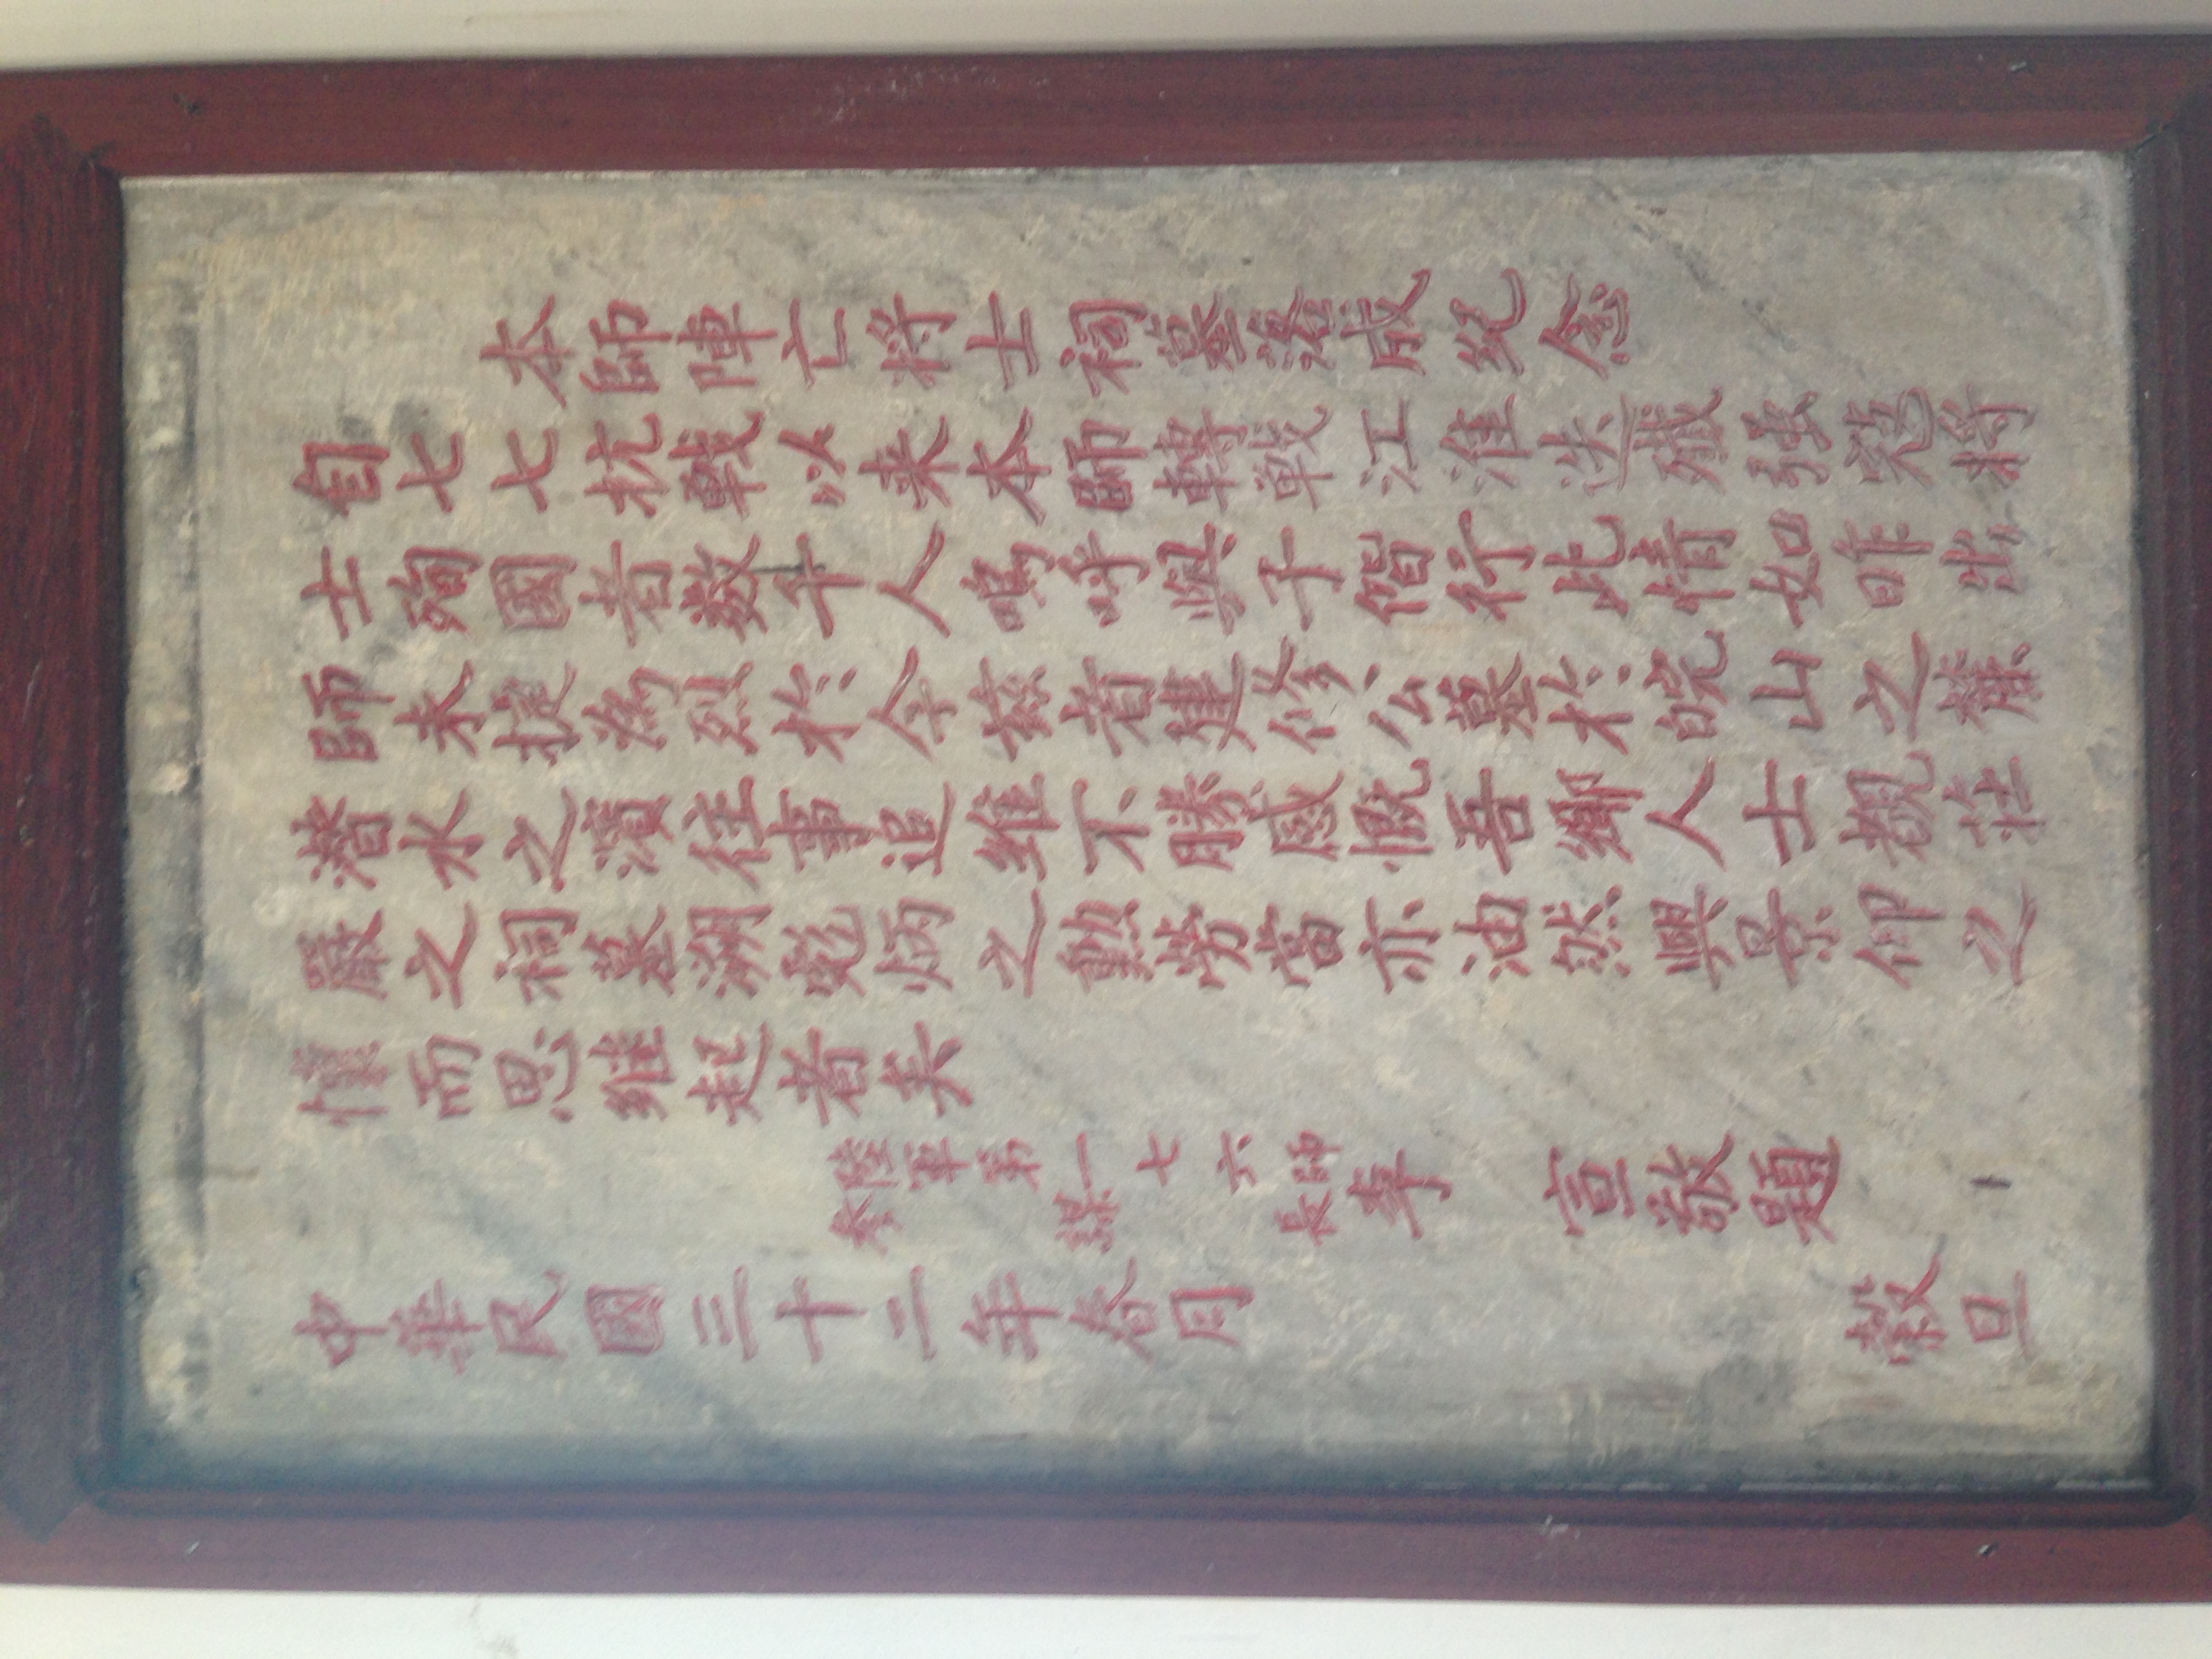 本師陣亡將士祠墓落成紀念
自七七抗戰以来本師轉戰江淮迭殲强寇將
士殉國者数千人嗚呼與子偕行此情如昨出
師未捷為烈於今兹者建修公墓於皖山之麓
潛水之濱往事追維不勝感慨吾鄉人士觀莊
嚴之祠墓溯彪炳之勲勞當亦油然興景仰之
懷而思继起者矣
陸軍第一七六師
參謀長李宣敬題
中華民國三十二年春月穀旦